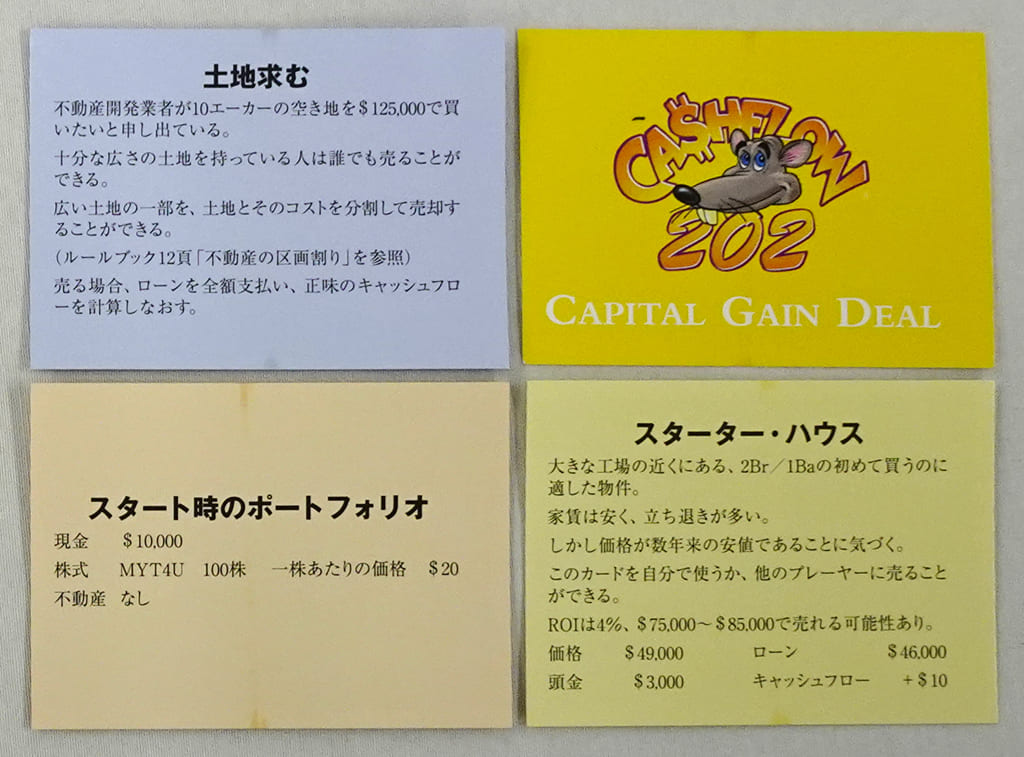 土地求む
不動産開発業者が10エーカーの空き地を＄125,000で買
いたいと申し出ている。
十分な広さの土地を持っている人は誰でも売ることが
できる。
広い土地の一部を、土地とそのコストを分割して売却す
ることができる。
（ルールブック12頁「不動産の区画割り」を参照）
売る場合、ローンを全額支払い、正味のキャッシュフロ
ーを計算しなおす。
CA$HFLOW
202
CAPITAL GAIN DEAL
スタート時のポートフォリオ
現金 ＄10,000
株式 MYT4U 100株 一株あたりの価格 ＄20
不動産 なし
スターター・ハウス
大きな工場の近くにある、2Br／1Baの初めて買うのに
適した物件。
家賃は安く、立ち退きが多い。
しかし価格が数年来の安値であることに気づく。
このカードを自分で使うか、他のプレーヤーに売ること
ができる。
ROIは4%、＄75,000～＄85,000で売れる可能性あり。
価格 ＄49,000 ローン ＄46,000
頭金 ＄3,000 キャッシュフロー +＄10